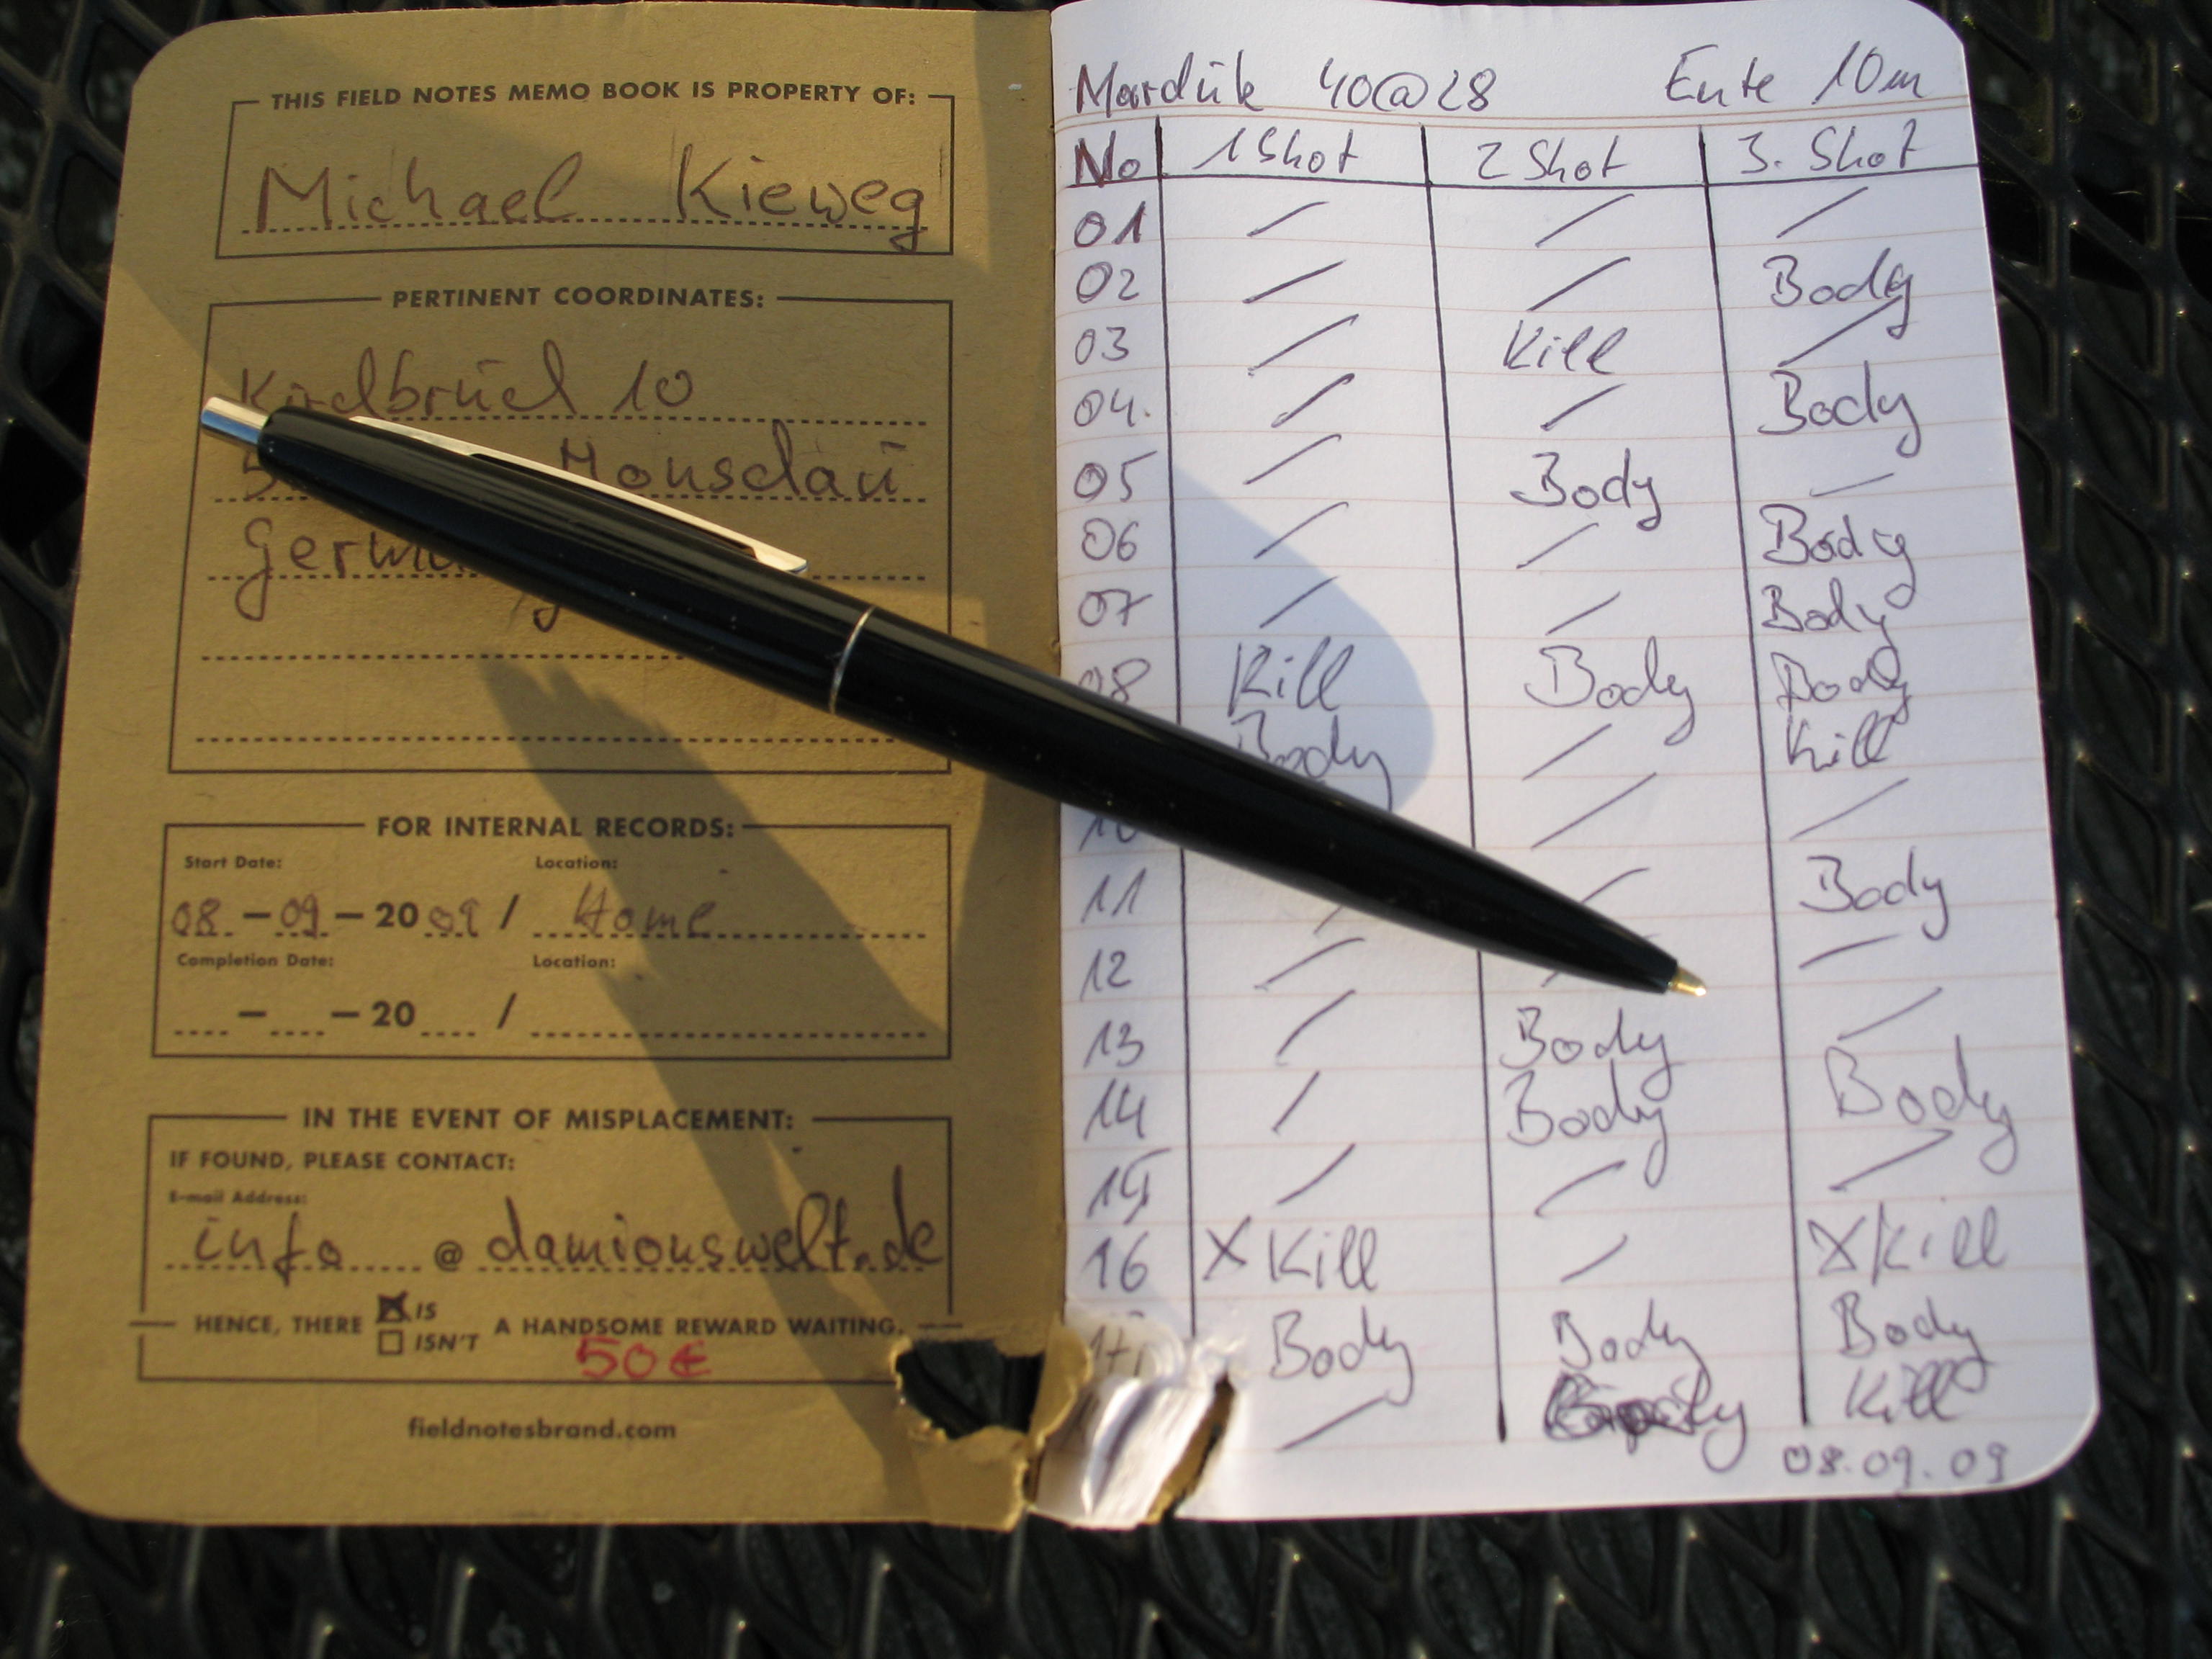 THIS FIELD NOTES MEMO BOOK IS PROPERTY OF:
Michael Kieweg
PERTINENT COORDINATES:
10
Germany
FOR INTERNAL RECORDS:
Start Date: Location:
08 - 09 - 2009 / Home
Completion Date: Location:
- - 20 /
IN THE EVENT OF MISPLACEMENT:
IF FOUND, PLEASE CONTACT:
E-mail Address:
info @ damionswelt.de
HENCE, THERE IS A HANDSOME REWARD WAITING.
ISN'T
50€
fieldnotesbrand.com
Marduk 40@28 Ente 10m
No 1 Shot 2 Shot 3. Shot
01 / / /
02 / / Body
03 / Kill /
04. / / Body
05 / Body /
06 / / Body
07 / / Body
08 Kill Body Body
Body / Kill
10 / /
11 / / Body
12 / / /
13 / Body /
14 / Body Body
15 / / /
16 X Kill / X Kill
17 Body Body Body
/ Kill
08.09.09